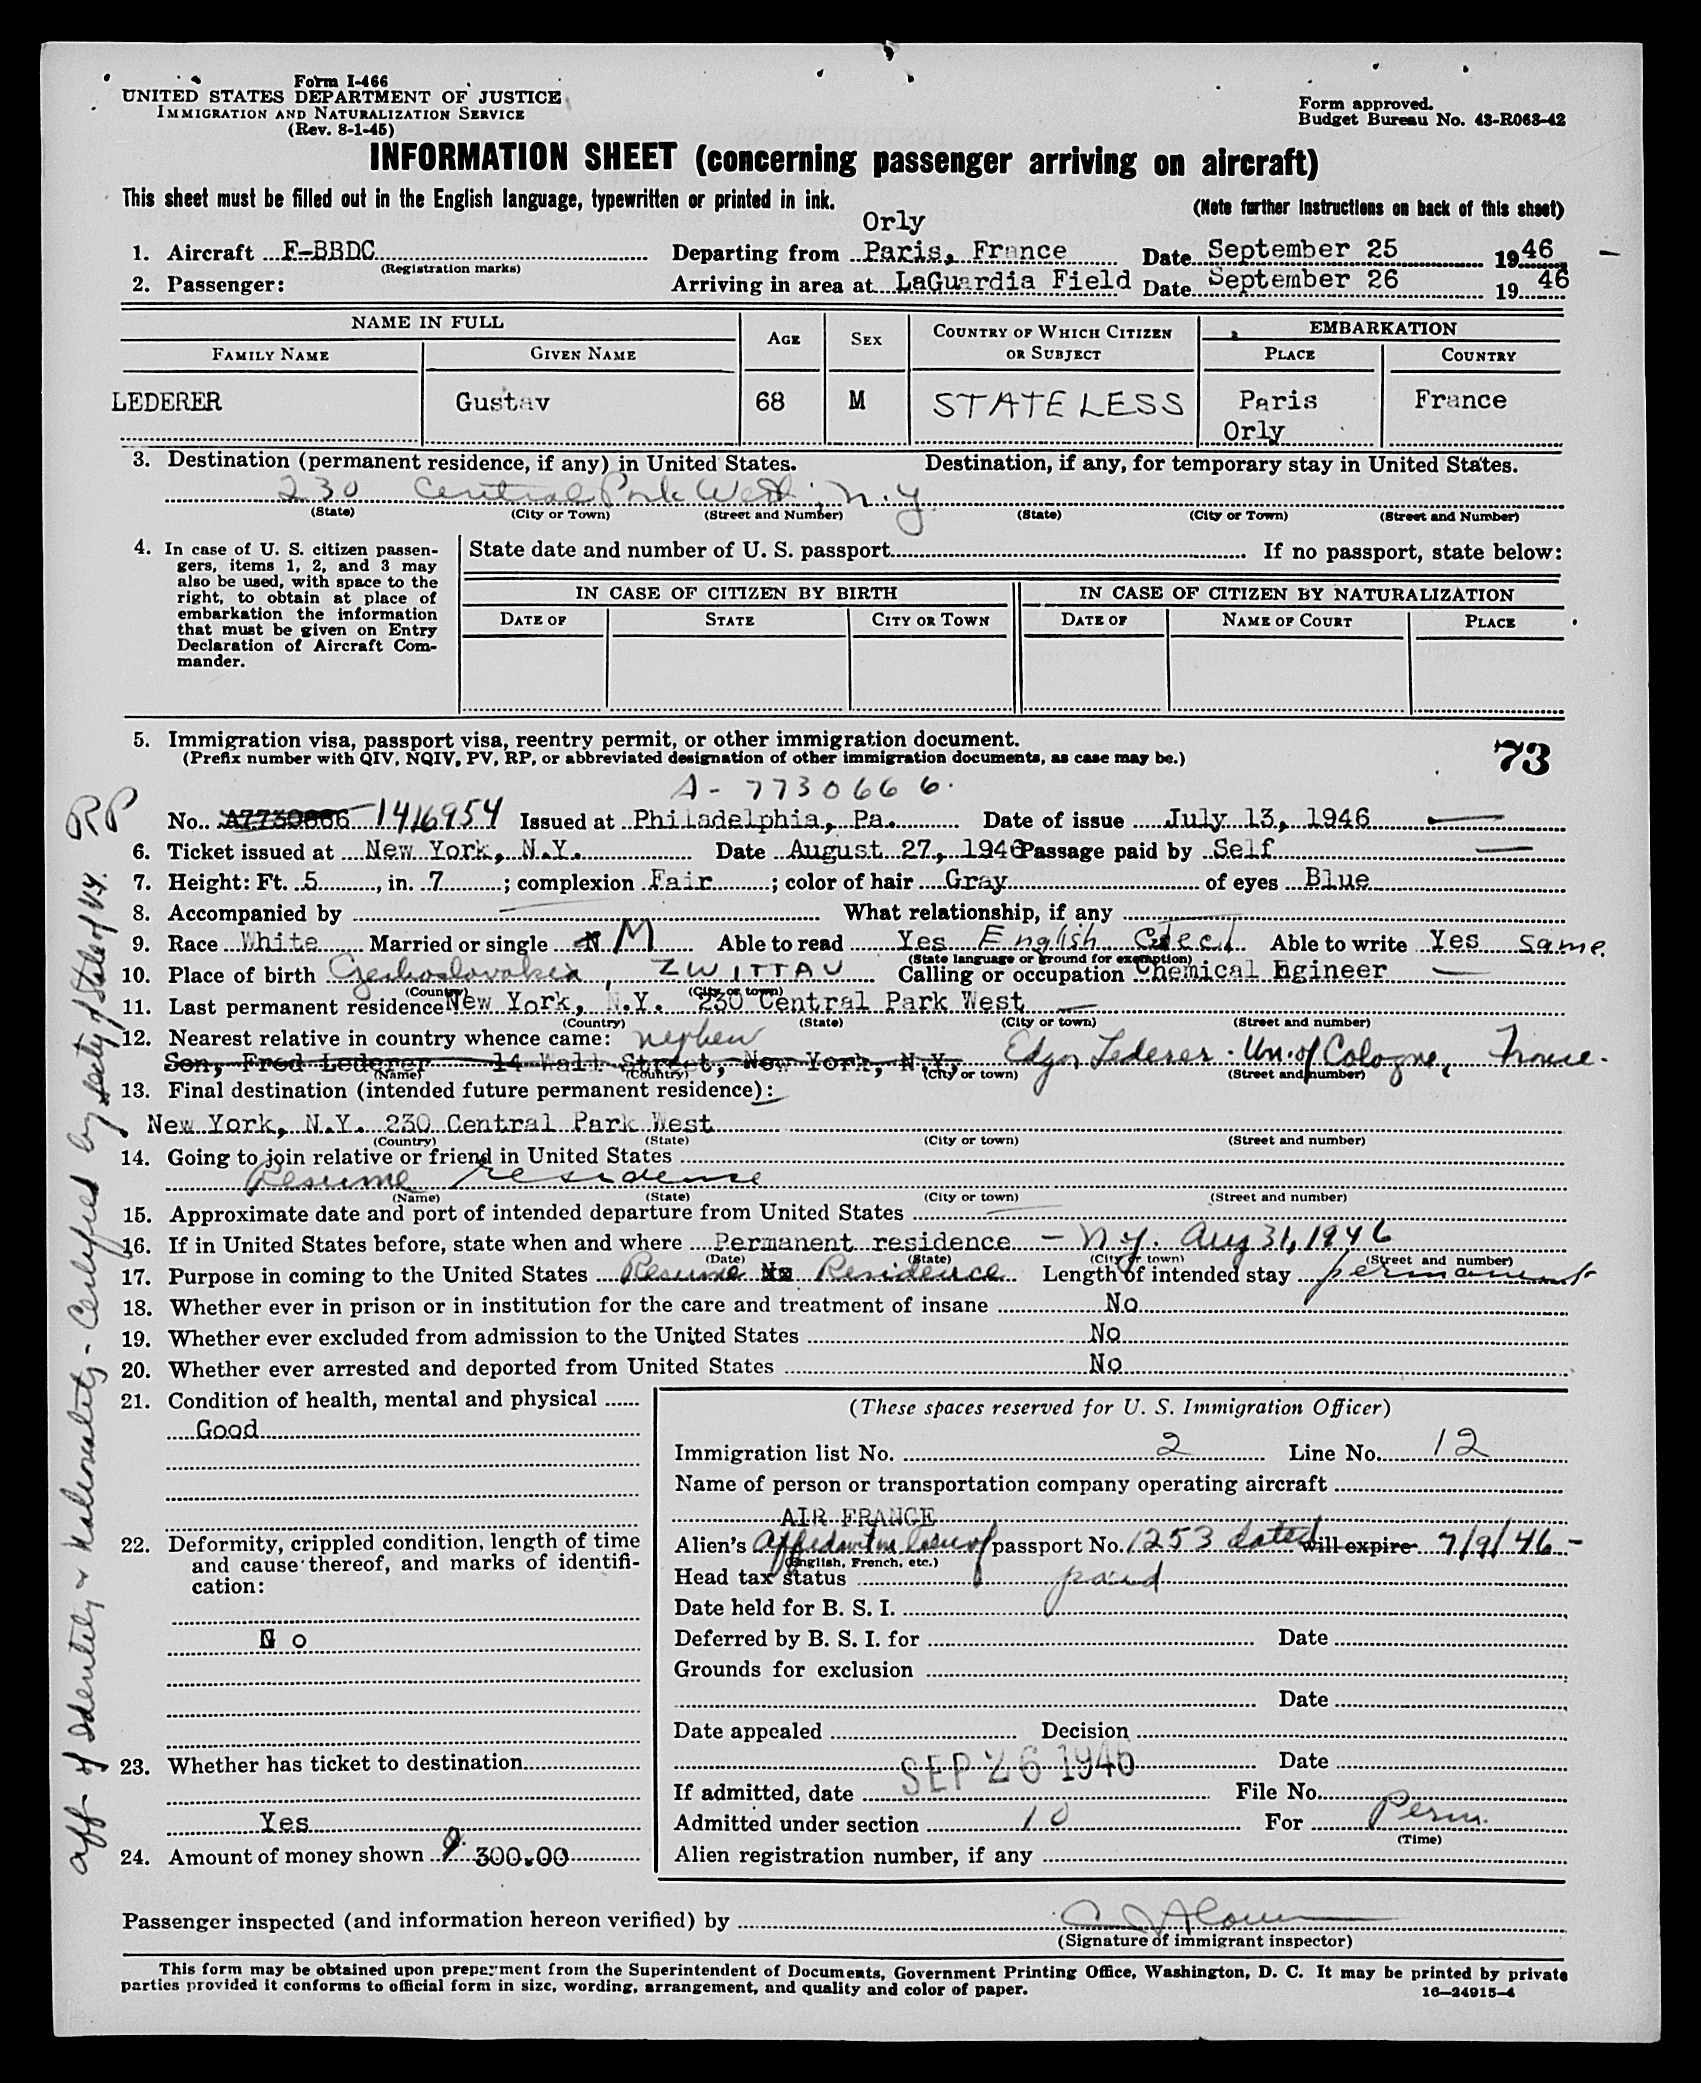 Form I-466
UNITED STATES DEPARTMENT OF JUSTICE
IMMIGRATION AND NATURALIZATION SERVICE
(Rev. 8-1-45)
Form approved.
Budget Bureau No. 43-R063-42
INFORMATION SHEET (concerning passenger arriving on aircraft)
This sheet must be filled out in the English language, typewritten or printed in ink.
(Note further instructions on back of this sheet)
Orly
1. Aircraft F-BBDC Departing from Paris, France Date September 25 1946
(Registration marks)
2. Passenger: Arriving in area at LaGuardia Field Date September 26 1946
NAME IN FULL AGE SEX COUNTRY OF WHICH CITIZEN OR SUBJECT EMBARKATION
FAMILY NAME GIVEN NAME PLACE COUNTRY
LEDERER Gustav 68 M STATELESS Paris France
Orly
3. Destination (permanent residence, if any) in United States. Destination, if any, for temporary stay in United States.
230 Central Park West, N.Y.
(State) (City or Town) (Street and Number) (State) (City or Town) (Street and Number)
4. In case of U. S. citizen passen-
gers, items 1, 2, and 3 may
also be used, with space to the
right, to obtain at place of
embarkation the information
that must be given on Entry
Declaration of Aircraft Com-
mander.
State date and number of U. S. passport If no passport, state below:
IN CASE OF CITIZEN BY BIRTH IN CASE OF CITIZEN BY NATURALIZATION
DATE OF STATE CITY OR TOWN DATE OF NAME OF COURT PLACE
5. Immigration visa, passport visa, reentry permit, or other immigration document.
(Prefix number with QIV, NQIV, PV, RP, or abbreviated designation of other immigration documents, as case may be.)
73
A-7730666.
RP
No. A7730666 1416954 Issued at Philadelphia, Pa. Date of issue July 13, 1946
6. Ticket issued at New York, N.Y. Date August 27, 1946 Passage paid by Self
7. Height: Ft. 5, in. 7; complexion Fair; color of hair Gray of eyes Blue
8. Accompanied by What relationship, if any
9. Race White Married or single M Able to read Yes English Able to write Yes same.
(State language or ground for exemption)
10. Place of birth Czechoslovakia, ZWITTAU Calling or occupation Chemical Engineer
(Country) (City or town)
11. Last permanent residence New York, N.Y. 230 Central Park West
(Country) (State) (City or town) (Street and number)
12. Nearest relative in country whence came: nephew
Son, Fred Lederer 14 Wall Street, New York, N.Y. Edgar Lederer. Un. of Cologne, France.
(Name) (Country) (City or town) (Street and number)
13. Final destination (intended future permanent residence):
New York, N.Y. 230 Central Park West
(Country) (State) (City or town) (Street and number)
14. Going to join relative or friend in United States
Resume residence
(Name) (State) (City or town) (Street and number)
15. Approximate date and port of intended departure from United States
16. If in United States before, state when and where Permanent residence - N.Y. Aug 31, 1946
(Date) (State) (City or town) (Street and number)
17. Purpose in coming to the United States Resume Residence Length of intended stay permanent
18. Whether ever in prison or in institution for the care and treatment of insane No
19. Whether ever excluded from admission to the United States No
20. Whether ever arrested and deported from United States No
21. Condition of health, mental and physical
Good
22. Deformity, crippled condition, length of time
and cause thereof, and marks of identifi-
cation:
No
23. Whether has ticket to destination
Yes
24. Amount of money shown $ 300.00
(These spaces reserved for U. S. Immigration Officer)
Immigration list No. 2 Line No. 12
Name of person or transportation company operating aircraft
AIR FRANCE
Alien's Affidavit in lieu of passport No. 1253 dated will expire 7/9/46 -
(English, French, etc.)
Head tax status paid
Date held for B. S. I.
Deferred by B. S. I. for Date
Grounds for exclusion
Date
Date appealed Decision
Date
If admitted, date SEP 26 1946 File No.
Admitted under section 10 For Perm.
(Time)
Alien registration number, if any
Passenger inspected (and information hereon verified) by
(Signature of immigrant inspector)
This form may be obtained upon prepayment from the Superintendent of Documents, Government Printing Office, Washington, D. C. It may be printed by private
parties provided it conforms to official form in size, wording, arrangement, and quality and color of paper.
16-24915-4
aff of Identity & Nationality - Certified by Secty of State of N.Y.